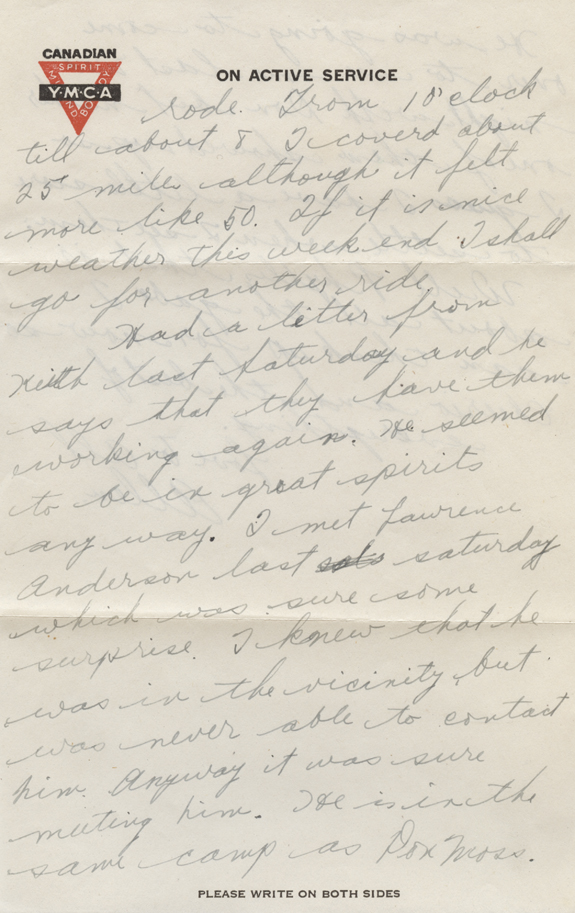 CANADIAN
SPIRIT
Y·M·C·A
MIND BODY
ON ACTIVE SERVICE
rode. From 1 O'clock
till about 8 I coverd about
25 miles although it felt
more like 50. If it is nice
weather this weekend I shall
go for another ride.
Had a letter from
Keith last Saturday and he
says that they have them
working again. He seemed
to be in great spirits
any way. I met Lawrence
Anderson last sats saturday
which was sure some
surprise. I knew that he
was in the vicinity but
was never able to contact
him. Anyway it was sure
meeting him. He is in the
same camp as Don Moss.
PLEASE WRITE ON BOTH SIDES